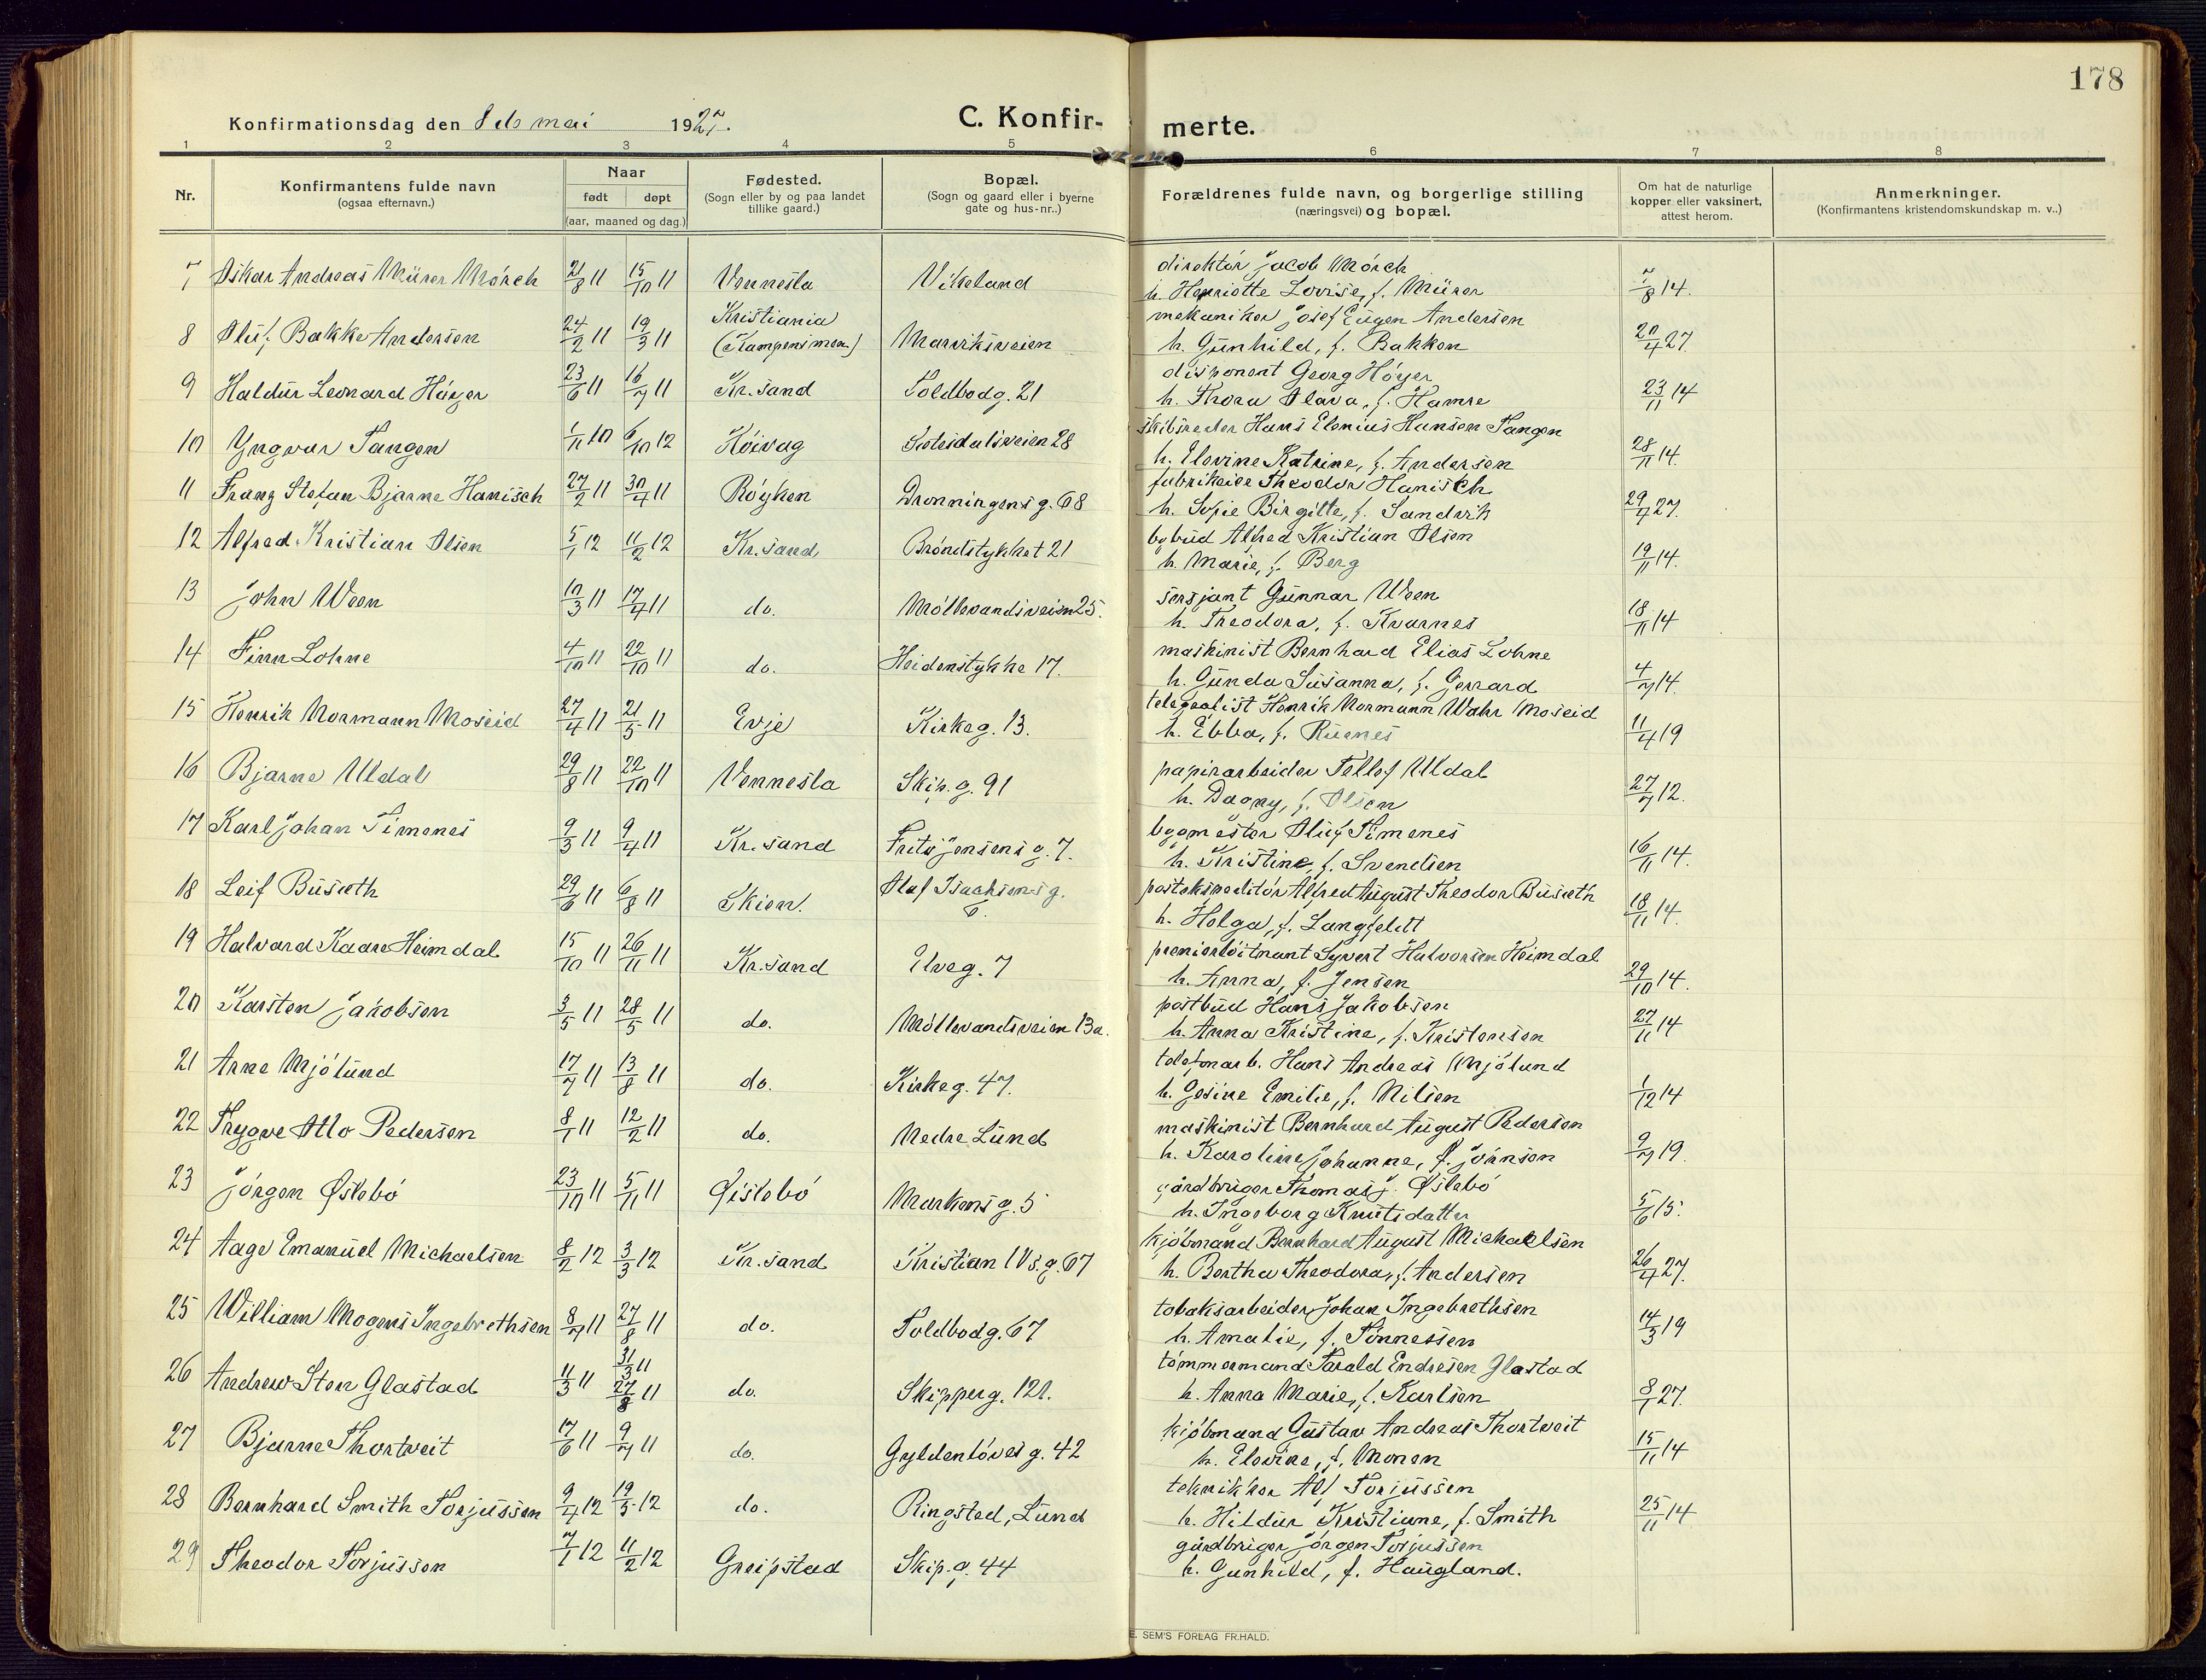 178
Konfirmationsdag den 8de mai 1927.
C. Konfir-
merte.
1 2 3 4 5 6 7 8
Nr.
Konfirmantens fulde navn
(ogsaa efternavn.)
Naar
født døpt
(aar, maaned og dag.)
Fødested.
(Sogn eller by og paa landet
tillike gaard.)
Bopæl.
(Sogn og gaard eller i byerne
gate og hus-nr..)
Forældrenes fulde navn, og borgerlige stilling
(næringsvei) og bopæl.
Om hat de naturlige
kopper eller vaksinert,
attest herom.
Anmerkninger.
(Konfirmantens kristendomskundskap m. v..)
7 Oskar Andreas Mürer Mörch 21/8 11 15/10 11 Vennesla Vikeland
direktör Jacob Mörch
h. Henriette Lovise, f. Mürer 7/8 14.
8 Oluf Bakke Andersen 24/2 11 19/3 11 Kristiania
(Kampens men.) Marviksveien
mekaniker Josef Eugen Andersen
h. Gunhild, f. Bakken 20/4 27.
9 Haldur Leonard Höyer 23/6 11 16/7 11 Kr.sand Toldbodg. 21
disponent Georg Höyer
h. Thora Olava, f. Hamre 23/11 14
10 Yngvar Tangen 1/11 10 6/10 12 Höivag Setesdalsveien 28
skibsreder Hans Elenius Hansen Tangen
h. Elevine Katrine, f. Andersen 28/11 14.
11 Franz Stefan Bjarne Hanisch 27/2 11 30/4 11 Röyken Dronningens g. 68
fabrikeier Theodor Hanisch
h. Sofie Birgitte, f. Sandvik 29/4 27.
12 Alfred Kristian Olsen 5/1 12 11/2 12 Kr.sand Bröndstykket 21
bybud Alfred Kristian Olsen
h. Marie, f. Berg 19/11 14.
13 John Ween 10/3 11 17/4 11 do. Möllevandsveien 25.
sersjant Gunnar Ween
h. Theodora, f. Kvarnes 18/11 14
14 Finn Lohne 4/10 11 22/10 11 do. Heidenstykke 17.
maskinist Bernhard Elias Lohne
h. Gunda Susanna, f. Gerrard 4/7 14.
15 Henrik Normann Moseid 27/4 11 21/5 11 Evje Kirkeg. 13.
telegrafist Henrik Normann Wahr Moseid
h. Ebba, f. Ruenes 11/4 19
16 Bjarne Uldal 29/8 11 22/10 11 Vennesla Skip. g. 91
papirarbeider Tellef Uldal
h. Dagny, f. Olsen 27/7 12.
17 Karl Johan Timenes 9/3 11 9/4 11 Kr.sand Fritz Jensens g. 7.
bygmester Oluf Timenes
h. Kristine, f. Svendsen 16/11 14.
18 Leif Busæth 29/6 11 6/8 11 Skien. Olaf Isachsens g.
6.
postekspeditör Alfred August Theodor Busæth
h. Helga, f. Langfeldt 18/11 14.
19 Halvard Kaare Heimdal 15/10 11 26/11 11 Kr.sand Elveg. 7
premierlöitnant Syvert Halvorsen Heimdal
h. Anna, f. Jensen 29/10 14.
20 Karsten Jakobsen 3/5 11 28/5 11 do. Möllevandsveien 13a.
postbud Hans Jakobsen
h. Anna Kristine, f. Kristensen 27/11 14
21 Arne Mjölund 17/7 11 13/8 11 do. Kirkeg. 47.
telefonarb. Hans Andreas Mjölund
h. Gesine Emilie, f. Nilsen 1/12 14
22 Thygve Otto Pedersen 8/1 11 12/2 11 do. Nedre Lund
maskinist Bernhard August Pedersen
h. Karoline Johanne, f. Johnsen 9/7 19.
23 Jörgen Östebö 23/10 11 5/11 11 Öislebö Markens g. 5
gårdbruger Thomas J. Östebö
h. Ingeborg Knutsdatter 5/6 15.
24 Aage Emanuel Michaelsen 8/2 12 3/3 12 Kr.sand Kristian IVs. g. 67
kjöbmand Bernhard August Michaelsen
h. Bertha Theodora, f. Andersen 26/4 27.
25 William Mogens Ingebrethsen 8/7 11 27/8 11 do. Toldbodg. 67
tobaksarbeider Johan Ingebrethsen
h. Amalie, f. Tönnessen 14/3 19
26 Andrew Sten Glastad 11/3 11 31/3 11
27/8 11 do. Skipperg. 121.
tömmermand Tarald Endresen Glastad
h. Anna Marie, f. Karlsen 8/1 27.
27 Bjarne Thortveit 17/6 11 9/7 11 do. Gyldenlöves g. 42
kjöbmand Gustav Andreas Thortveit
h. Elevine, f. Monen 15/11 14
28 Bernhard Smith Torjussen 9/4 12 19/5 12 do. Ringsted, Lund
tekniker Alf Torjussen
h. Hildur Kristiane, f. Smith 25/11 14
29 Theodor Torjussen 7/1 12 11/2 12 Greipstad Skip. g. 44
gårdbruger Jörgen Torjussen
h. Gunhild, f. Haugland.
E. SEM'S FORLAG FR.HALD.